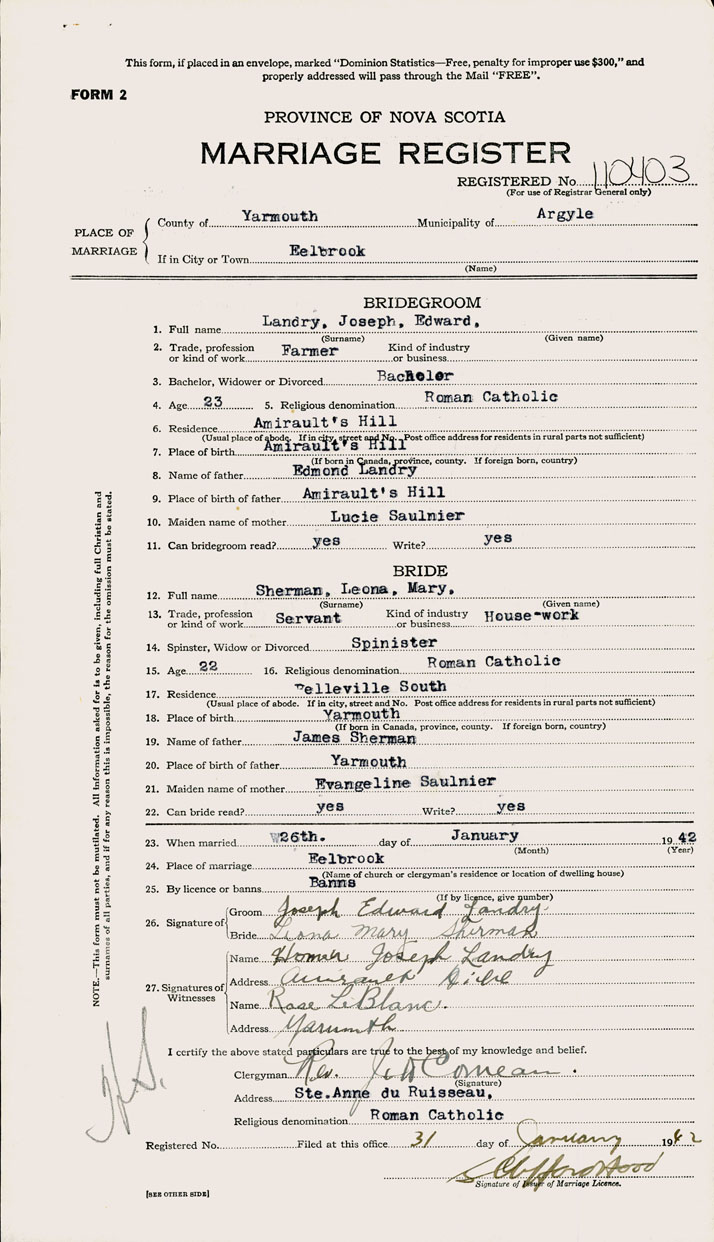 This form, if placed in an envelope, marked “Dominion Statistics—Free, penalty for improper use $300,” and
properly addressed will pass through the Mail “FREE”.
FORM 2
PROVINCE OF NOVA SCOTIA
MARRIAGE REGISTER
REGISTERED No. 110403
(For use of Registrar General only)
PLACE OF MARRIAGE
County of Yarmouth Municipality of Argyle
If in City or Town Eelbrook
(Name)
BRIDEGROOM
1. Full name Landry, Joseph, Edward,
(Surname) (Given name)
2. Trade, profession or kind of work Farmer Kind of industry or business
3. Bachelor, Widower or Divorced Bachelor
4. Age 23 5. Religious denomination Roman Catholic
6. Residence Amirault's Hill
(Usual place of abode. If in city, street and No. Post office address for residents in rural parts not sufficient)
7. Place of birth Amirault's Hill
(If born in Canada, province, county. If foreign born, country)
8. Name of father Edmond Landry
9. Place of birth of father Amirault's Hill
10. Maiden name of mother Lucie Saulnier
11. Can bridegroom read? yes Write? yes
BRIDE
12. Full name Sherman, Leona, Mary,
(Surname) (Given name)
13. Trade, profession or kind of work Servant Kind of industry or business House-work
14. Spinster, Widow or Divorced Spinister
15. Age 22 16. Religious denomination Roman Catholic
17. Residence Belleville South
(Usual place of abode. If in city, street and No. Post office address for residents in rural parts not sufficient)
18. Place of birth Yarmouth
(If born in Canada, province, county. If foreign born, country)
19. Name of father James Sherman
20. Place of birth of father Yarmouth
21. Maiden name of mother Evangeline Saulnier
22. Can bride read? yes Write? yes
23. When married 26th. day of January 1942
(Month) (Year)
24. Place of marriage Eelbrook
(Name of church or clergyman's residence or location of dwelling house)
25. By licence or banns Banns
(If by licence, give number)
26. Signature of
Groom Joseph Edward Landry
Bride Leona Mary Sherman
27. Signatures of Witnesses
Name Homer Joseph Landry
Address Amirault Hill
Name Rose LeBlanc.
Address Yarmouth
I certify the above stated particulars are true to the best of my knowledge and belief.
Clergyman Rev. Comeau.
(Signature)
Address Ste.Anne du Ruisseau,
Religious denomination Roman Catholic
Registered No. Filed at this office 31 day of January 1942
S Clifford Hood
Signature of Issuer of Marriage Licence.
[SEE OTHER SIDE]
NOTE.—This form must not be mutilated. All information asked for is to be given, including full Christian and
surnames of all parties, and if for any reason this is impossible, the reason for the omission must be stated.